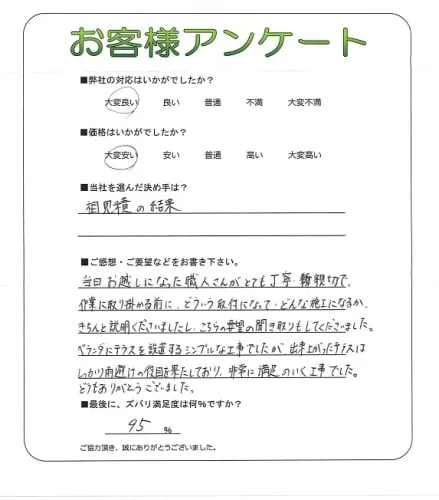 お客様アンケート
■弊社の対応はいかがでしたか？
大変良い 良い 普通 不満 大変不満
■価格はいかがでしたか？
大変安い 安い 普通 高い 大変高い
■当社を選んだ決め手は？
相見積の結果
■ご感想・ご要望などをお書き下さい。
当日お越しになった職人さんがとても丁寧・親切で、
作業に取り掛かる前に、どういう取付になって・どんな施工になるか、
きちんと説明くださいましたし、こちらの要望の聞き取りもしてくださいました。
ベランダにテラスを設置するシンプルな工事でしたが、出来上がったテラスは
しっかり雨避けの役目を果たしており、非常に満足のいく工事でした。
どうもありがとうございました。
■最後に、ズバリ満足度は何%ですか？
95 %
ご協力頂き、誠にありがとうございました。